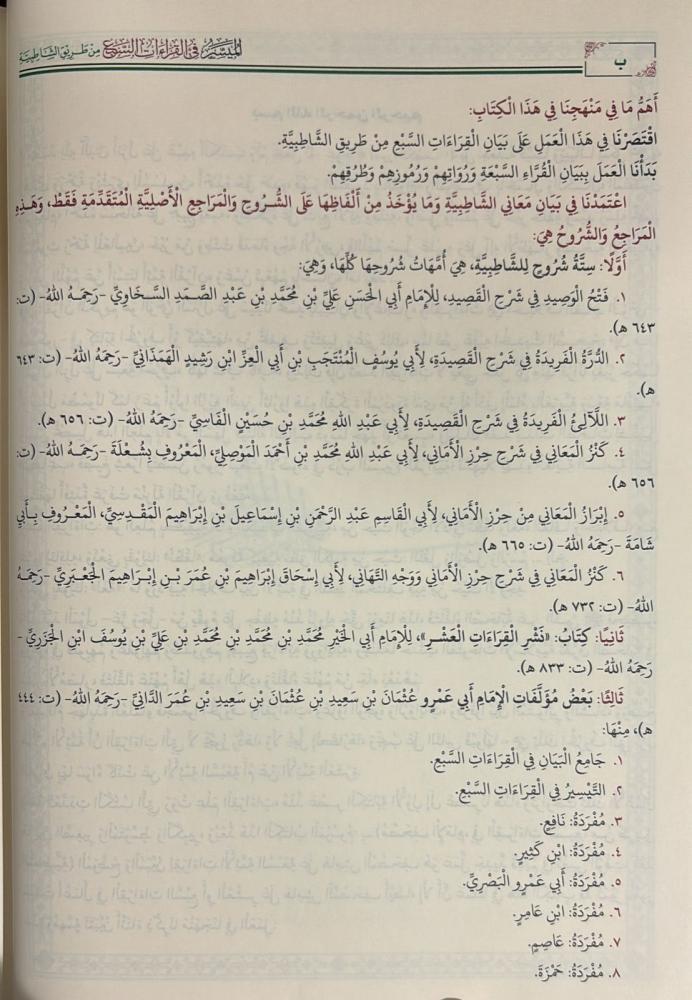 المُيَسَّرُ فِي القِرَاءَاتِ السَّبْعِ مِنْ طَرِيقِ الشَّاطِبِيَّةِ
ب
أَهَمُّ مَا فِي مَنْهَجِنَا فِي هَذَا الْكِتَابِ:
اقْتَصَرْنَا فِي هَذَا الْعَمَلِ عَلَى بَيَانِ الْقِرَاءَاتِ السَّبْعِ مِنْ طَرِيقِ الشَّاطِبِيَّةِ.
بَدَأْنَا الْعَمَلَ بِبَيَانِ الْقُرَّاءِ السَّبْعَةِ وَرُوَاتِهِمْ وَرُمُوزِهِمْ وَطُرُقِهِمْ.
اعْتَمَدْنَا فِي بَيَانِ مَعَانِي الشَّاطِبِيَّةِ وَمَا يُؤْخَذُ مِنْ أَلْفَاظِهَا عَلَى الشُّرُوحِ وَالْمَرَاجِعِ الْأَصْلِيَّةِ الْمُتَقَدِّمَةِ فَقَطْ، وَهَذِهِ
الْمَرَاجِعُ وَالشُّرُوحُ هِيَ:
أَوَّلًا: سِتَّةُ شُرُوحٍ لِلشَّاطِبِيَّةِ، هِيَ أُمَّهَاتُ شُرُوحِهَا كُلِّهَا، وَهِيَ:
١. فَتْحُ الْوَصِيدِ فِي شَرْحِ الْقَصِيدِ، لِلْإِمَامِ أَبِي الْحَسَنِ عَلِيِّ بْنِ مُحَمَّدِ بْنِ عَبْدِ الصَّمَدِ السَّخَاوِيِّ -رَحِمَهُ اللهُ- (ت:
٦٤٣ ه).
٢. الدُّرَّةُ الْفَرِيدَةُ فِي شَرْحِ الْقَصِيدَةِ، لِأَبِي يُوسُفَ الْمُنْتَجَبِ بْنِ أَبِي الْعِزِّ ابْنِ رَشِيدٍ الْهَمَذَانِيِّ -رَحِمَهُ اللهُ- (ت: ٦٤٣
ه).
٣. اللَّآلِئُ الْفَرِيدَةُ فِي شَرْحِ الْقَصِيدَةِ، لِأَبِي عَبْدِ اللهِ مُحَمَّدِ بْنِ حُسَيْنٍ الْفَاسِيِّ -رَحِمَهُ اللهُ- (ت: ٦٥٦ ه).
٤. كَنْزُ الْمَعَانِي فِي شَرْحِ حِرْزِ الْأَمَانِي، لِأَبِي عَبْدِ اللهِ مُحَمَّدِ بْنِ أَحْمَدَ الْمَوْصِلِيِّ، الْمَعْرُوفِ بِشُعْلَةَ -رَحِمَهُ اللهُ- (ت:
٦٥٦ ه).
٥. إِبْرَازُ الْمَعَانِي مِنْ حِرْزِ الْأَمَانِي، لِأَبِي الْقَاسِمِ عَبْدِ الرَّحْمَنِ بْنِ إِسْمَاعِيلَ بْنِ إِبْرَاهِيمَ الْمَقْدِسِيِّ، الْمَعْرُوفِ بِأَبِي
شَامَةَ -رَحِمَهُ اللهُ- (ت: ٦٦٥ ه).
٦. كَنْزُ الْمَعَانِي فِي شَرْحِ حِرْزِ الْأَمَانِي وَوَجْهِ التَّهَانِي، لِأَبِي إِسْحَاقَ إِبْرَاهِيمَ بْنِ عُمَرَ بْنِ إِبْرَاهِيمَ الْجَعْبَرِيِّ -رَحِمَهُ
اللهُ- (ت: ٧٣٢ ه).
ثَانِيًا: كِتَابُ: «نَشْرِ الْقِرَاءَاتِ الْعَشْرِ»، لِلْإِمَامِ أَبِي الْخَيْرِ مُحَمَّدِ بْنِ مُحَمَّدِ بْنِ مُحَمَّدِ بْنِ عَلِيِّ بْنِ يُوسُفَ ابْنِ الْجَزَرِيِّ -
رَحِمَهُ اللهُ- (ت: ٨٣٣ ه).
ثَالِثًا: بَعْضُ مُؤَلَّفَاتِ الْإِمَامِ أَبِي عَمْرٍو عُثْمَانَ بْنِ سَعِيدِ بْنِ عُثْمَانَ بْنِ سَعِيدِ بْنِ عُمَرَ الدَّانِيِّ -رَحِمَهُ اللهُ- (ت: ٤٤٤
ه)، مِنْهَا:
١. جَامِعُ الْبَيَانِ فِي الْقِرَاءَاتِ السَّبْعِ.
٢. التَّيْسِيرُ فِي الْقِرَاءَاتِ السَّبْعِ.
٣. مُفْرَدَةُ: نَافِعٍ.
٤. مُفْرَدَةُ: ابْنِ كَثِيرٍ.
٥. مُفْرَدَةُ: أَبِي عَمْرٍو الْبَصْرِيِّ.
٦. مُفْرَدَةُ: ابْنِ عَامِرٍ.
٧. مُفْرَدَةُ: عَاصِمٍ.
٨. مُفْرَدَةُ: حَمْزَةَ.